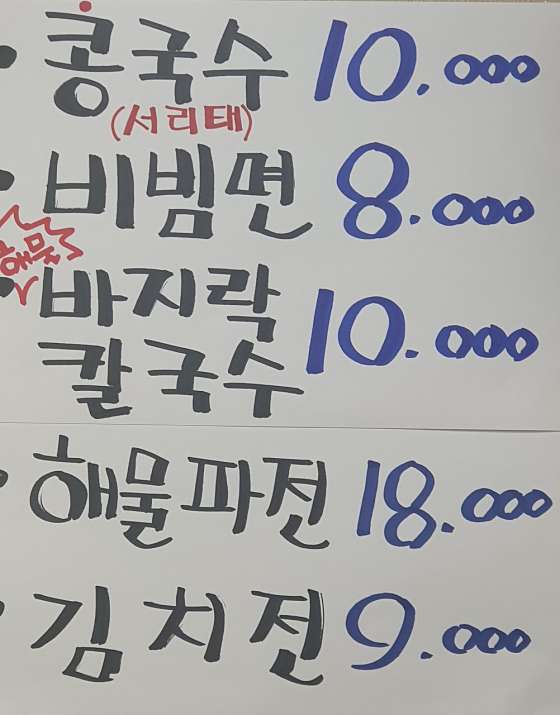 콩국수 10.000
(서리태)
비빔면 8.000
해물
바지락 10.000
칼국수
해물파전 18.000
김치전 9.000